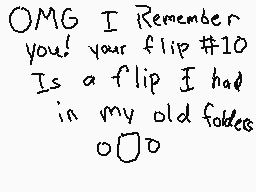 OMG I Remember
you! your flip #10
Is a flip I had
in my old folders
o0o